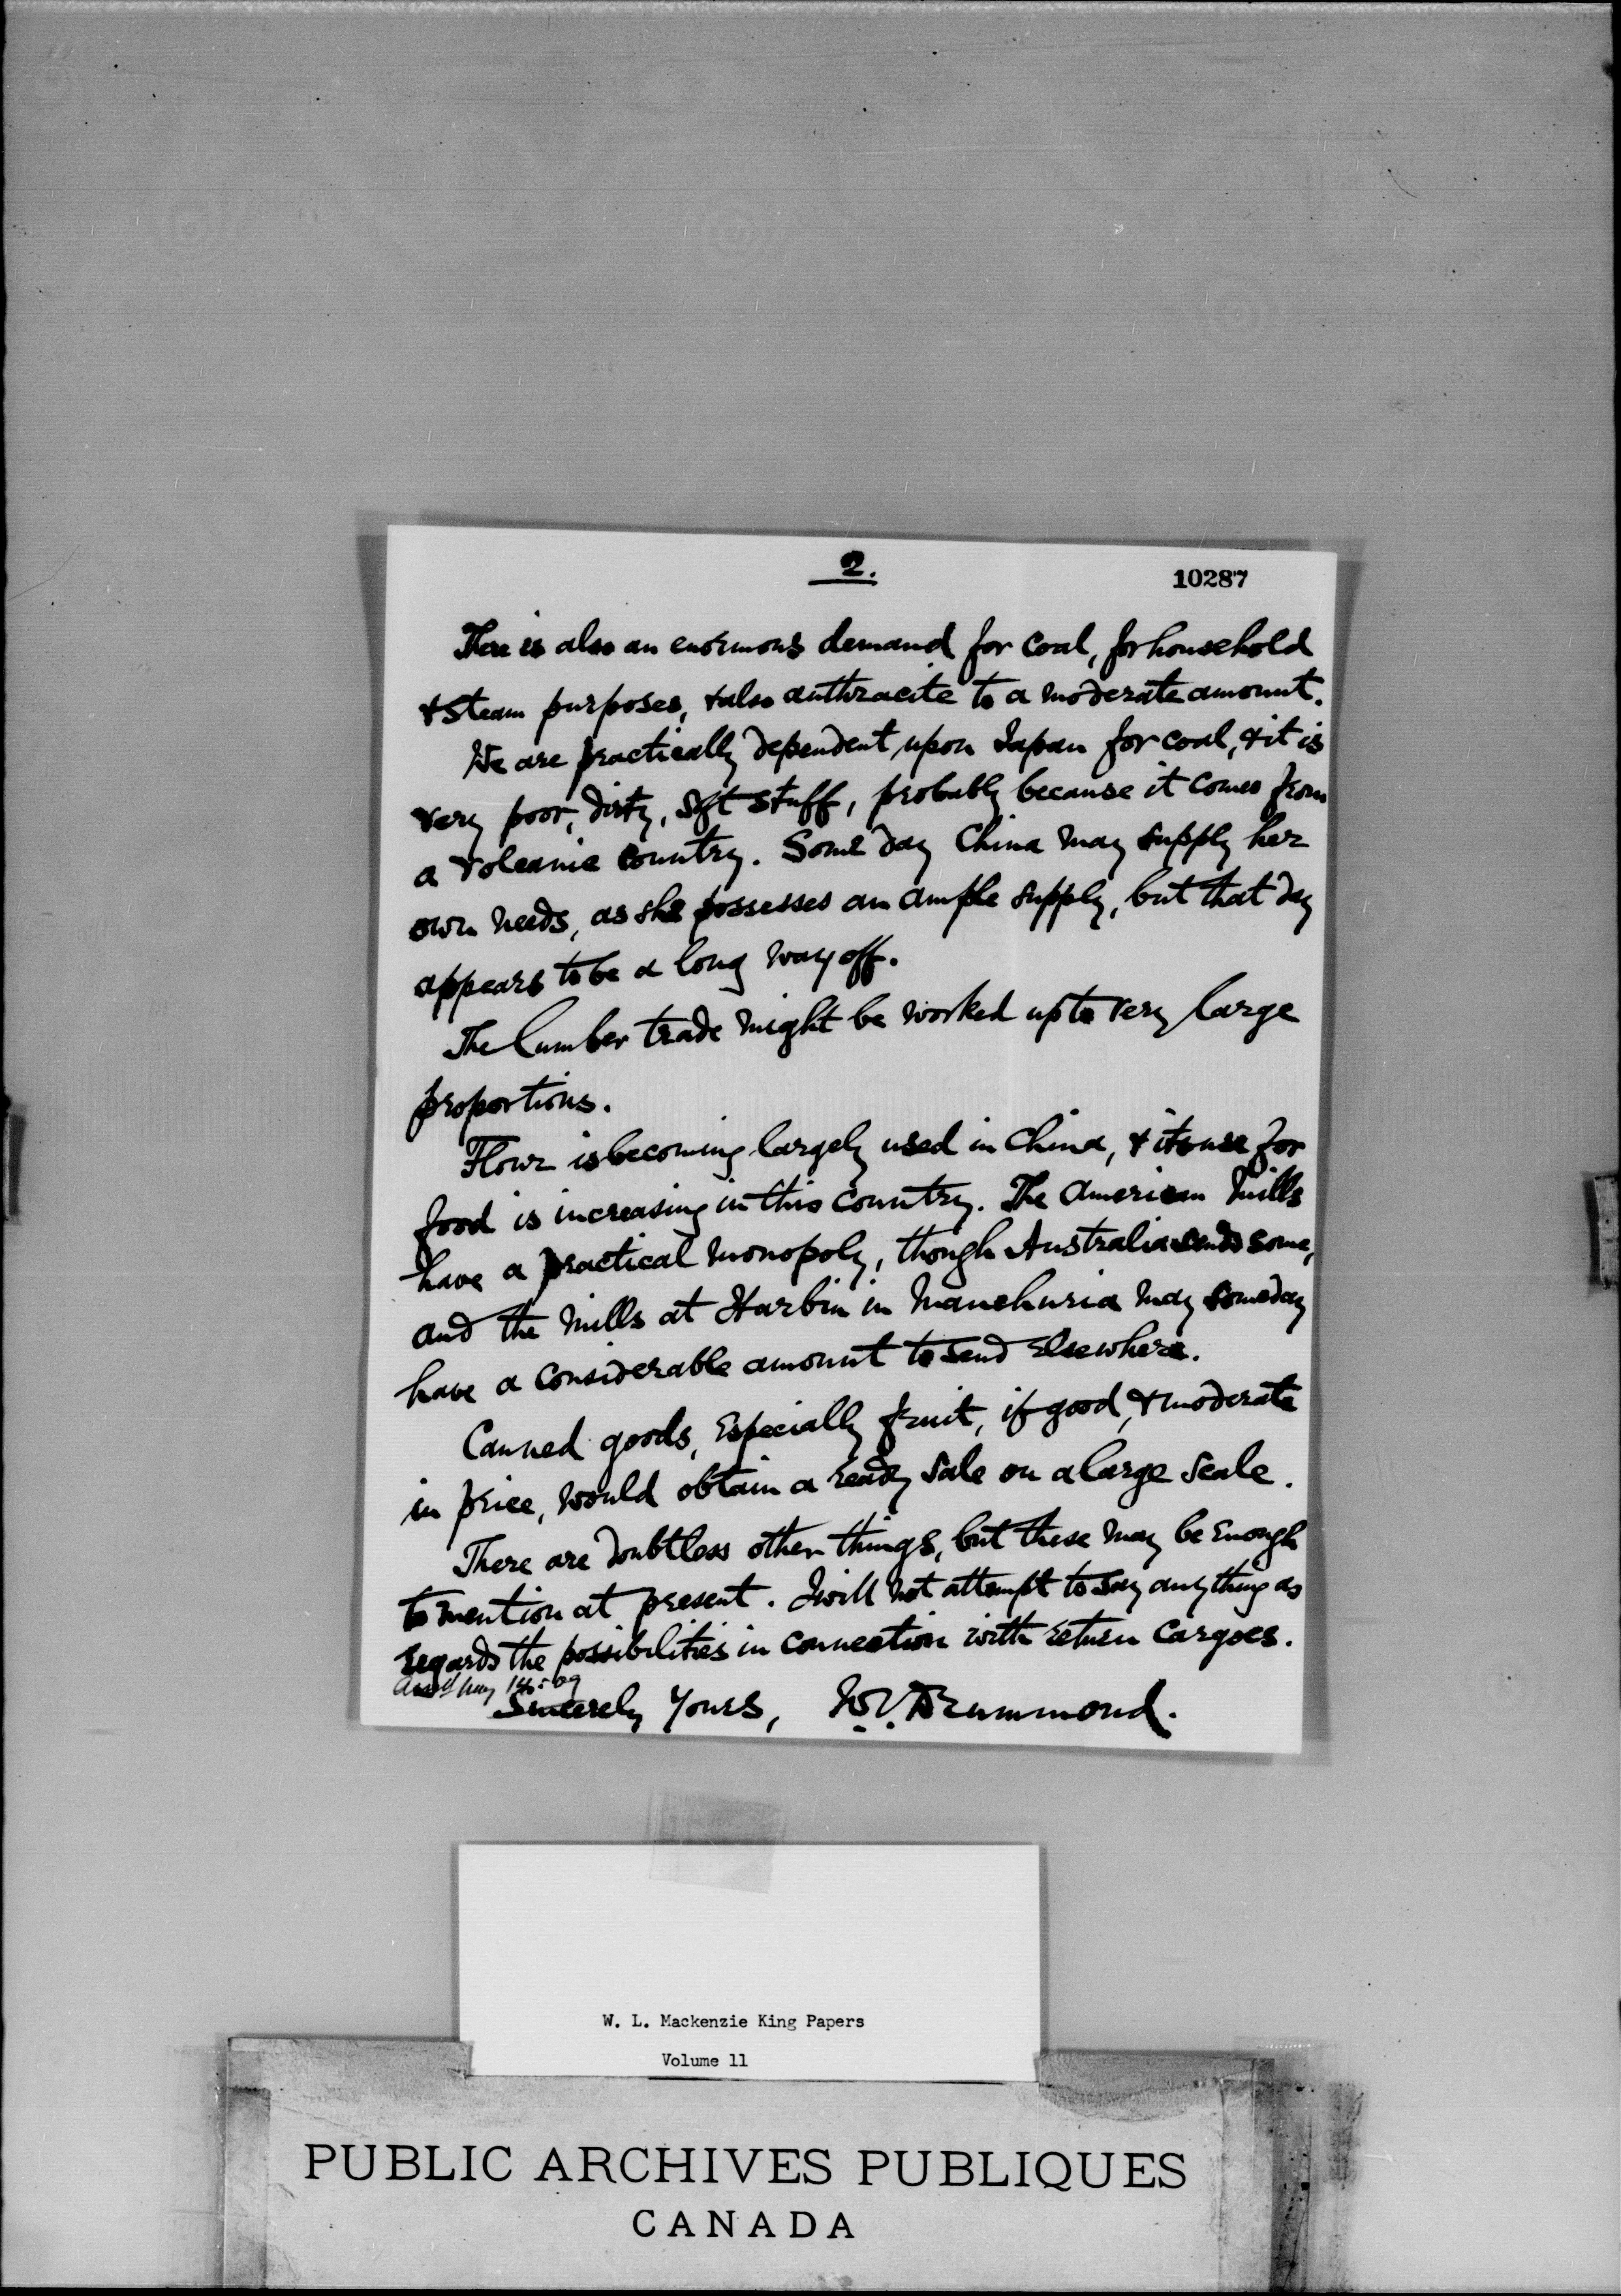 2.
10287
There is also an enormous demand for coal, for household
& steam purposes, & also anthracite to a moderate amount.
We are practically dependent upon Japan for coal, & it is
very poor, dirty, soft stuff, probably because it comes from
a volcanic country. Some day China may supply her
own needs, as she possesses an ample supply, but that day
appears to be a long way off.
The lumber trade might be worked up to very large
proportions.
Flour is becoming largely used in China, & its use for
food is increasing in this country. The American Mills
have a practical monopoly, though Australia sends some,
and the Mills at Harbin in Manchuria may someday
have a considerable amount to send elsewhere.
Canned goods, especially fruit, if good, & moderate
in price, would obtain a ready sale on a large scale.
There are doubtless other things, but these may be enough
to mention at present. I will not attempt to say anything as
regards the possibilities in connection with return cargoes.
May 09
Sincerely Yours, W.V. Drummond.
W. L. Mackenzie King Papers
Volume 11
PUBLIC ARCHIVES PUBLIQUES
CANADA